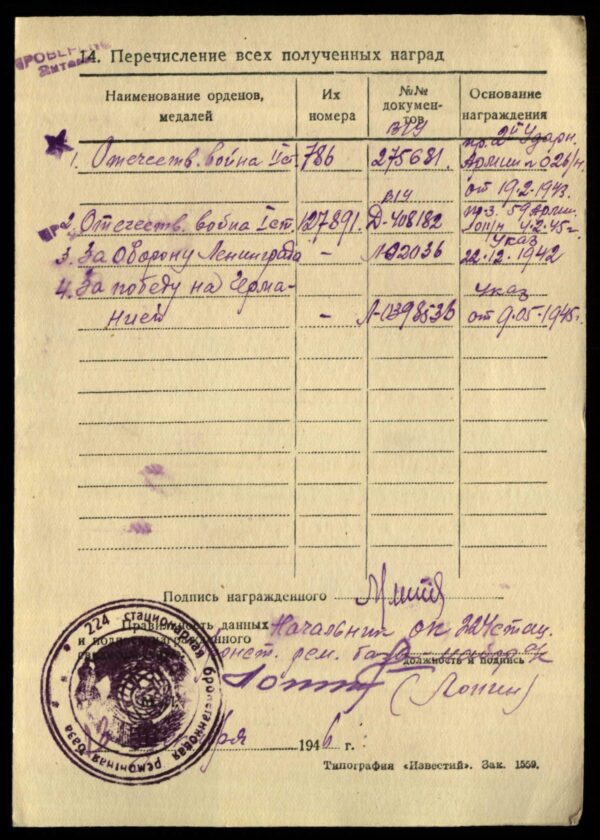 ПРОВЕРЕНО
14. Перечисление всех полученных наград
Наименование орденов, медалей
Их номера
№№ документов
Основание награждения
1. Отечеств. война I ст. 786 ВрУ 275681. пр. 2й Ударн. Армии № 026/н. от 19.2.1943.
2. Отечеств. война I ст. 127891. Д-408182 59 Армии 4-2-45г.
3. За Оборону Ленинграда - Указ 22.12.1942
4. За победу на Герма-
нией - Указ от 9.05.1945г.
Подпись награжденного
Правильность данных Начальник ОК 224 стац.
и подписи награжденного
рем. база
должность и подпись
(Лопин)
194 6 г.
224 стационарная бронетанковая ремонтная база
Типография «Известий». Зак. 1559.